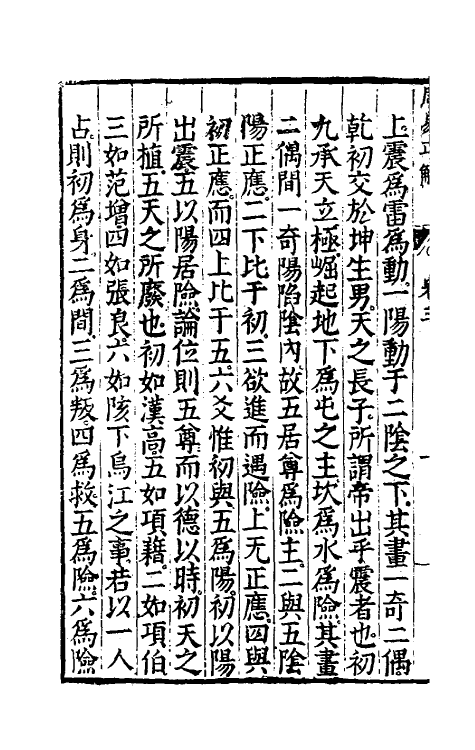 上震爲雷爲動一陽動于二陰之下其畫一奇二偶
乾初交於坤生男天之長子所謂帝出乎震者也初
九承天立極崛起地下爲屯之主坎爲水爲險其畫
二偶間一奇陽陷陰內故五居尊爲險主二與五陰
陽正應二下比于初三欲進而遇險上无正應四與
初正應而四上比于五六爻惟初與五爲陽初以陽
出震五以陽居險論位則五尊而以德以時初天之
所植五天之所廢也初如漢高五如項籍二如項伯
三如范增四如張良六如陔下烏江之事若以一人
占則初爲身二爲間三爲叛四爲救五爲險六爲險